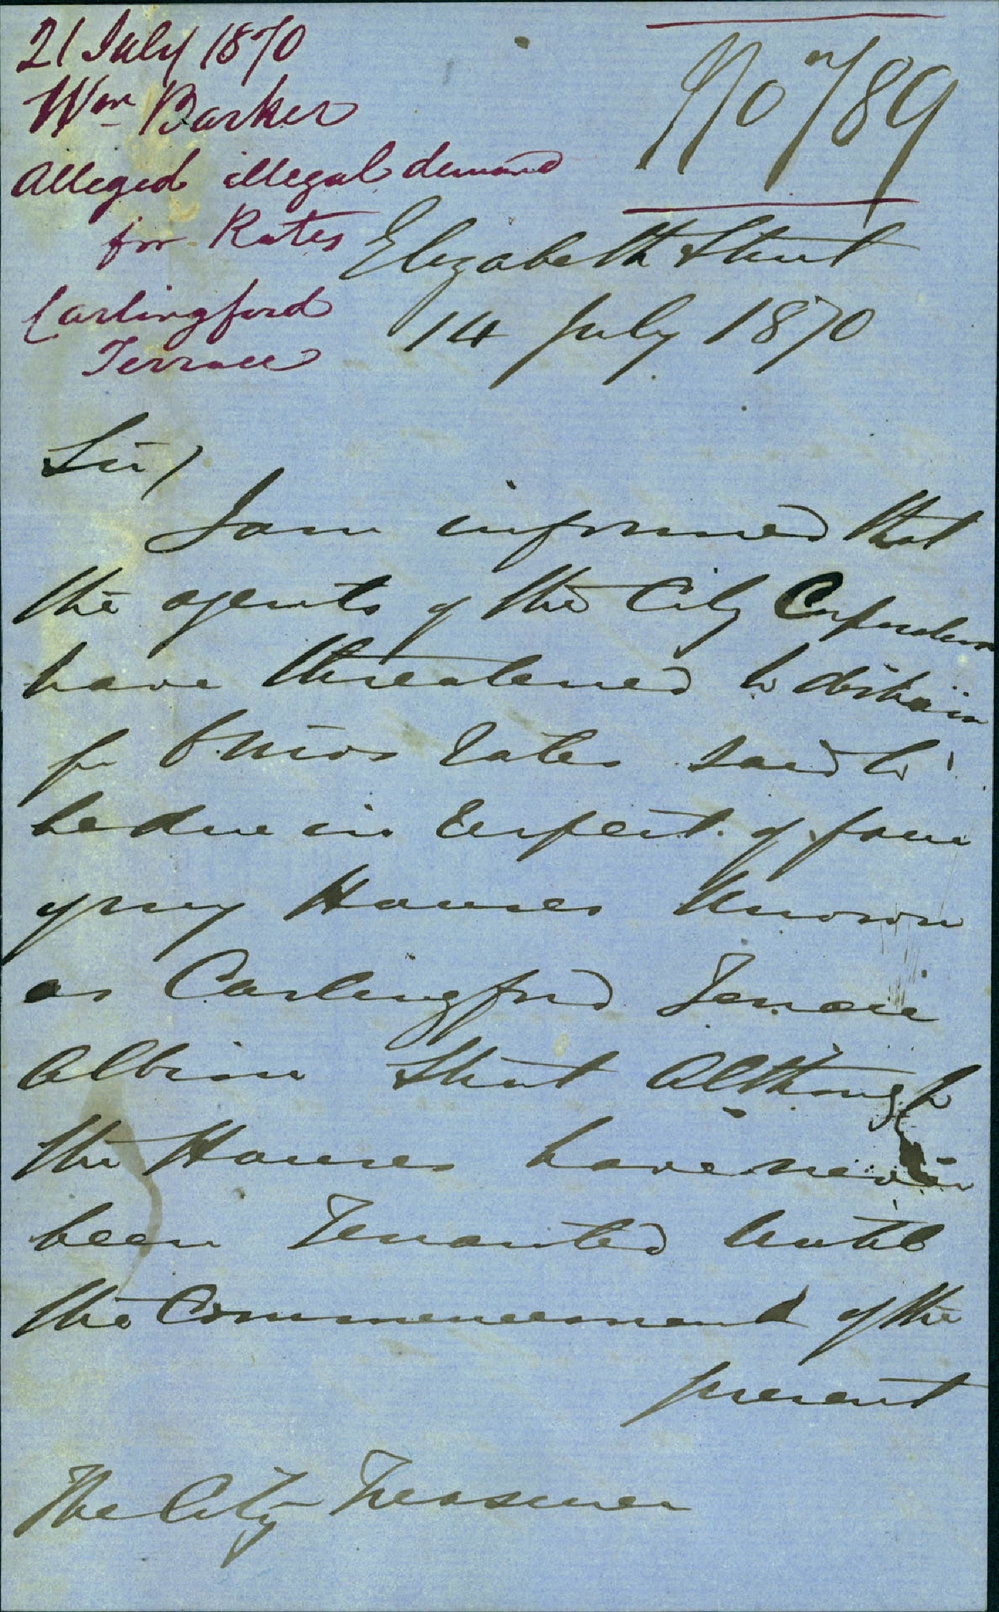 21 July 1870
Wm Barker
Alleged illegal demand
for Rates
Carlingford
Terrace
No 789
Elizabeth Street
14 July 1870
Sir/
I am informed that
the agents of the City Corporation
have threatened to distrain
for 6 mos rates said to
be due in respect of four
of my Houses Known
as Carlingford Terrace
Albion Street Although
the Houses have never
been Tenanted until
the Commencement of the
present
The City Treasurer